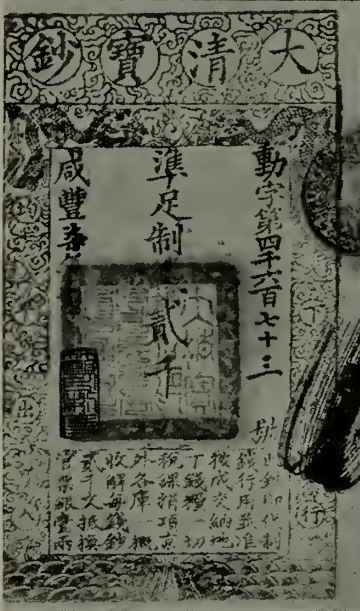 大清寶鈔
動字第四千六百七十三號
準足制 貳千
咸豐柒
此鈔即代制
錢行用並准
按成交納地
丁錢糧一切
稅課捐項京
外各庫一概
收解每錢鈔
貳千文抵換
官票銀壹兩
下 行
均 出入